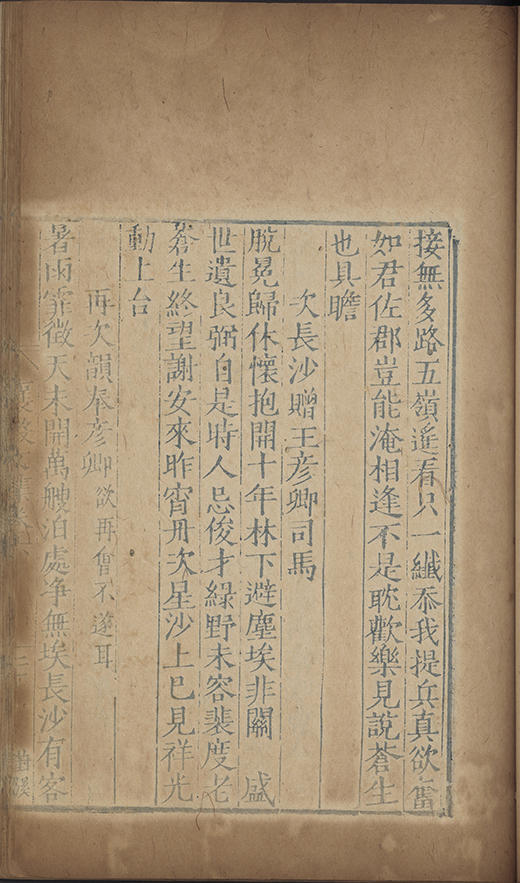 接無多路五嶺遙看只一纖忝我提兵真欲奮
如君佐郡豈能淹相逢不是耽歡樂見說蒼生
也具瞻
次長沙贈王彥卿司馬
脫冕歸休懷抱開十年林下避塵埃非關 盛
世遺良弼自是時人忌俊才綠野未容裴度老
蒼生終望謝安來昨宵舟次星沙上已見祥光
動上台
再次韻奉彥卿欲再僧不遂耳
暑雨霏微天未開萬艘泊處争無埃長沙有客